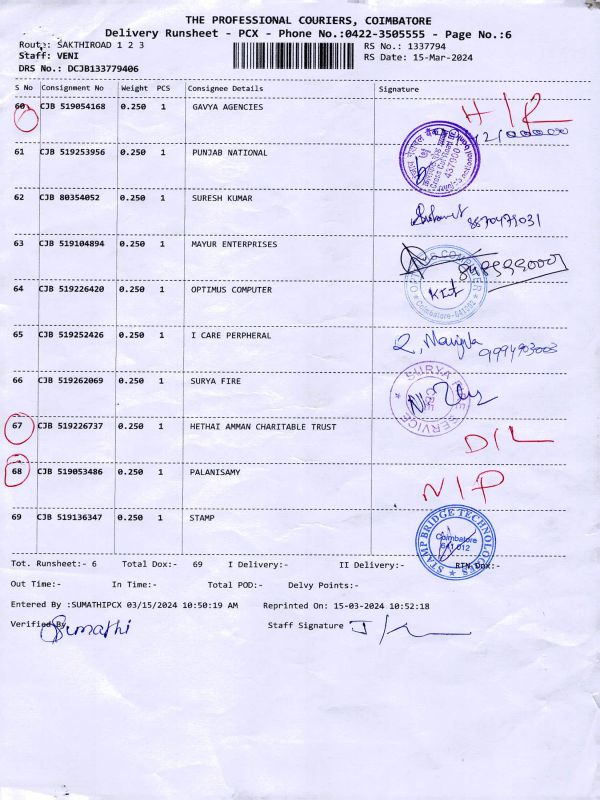 THE PROFESSIONAL COURIERS, COIMBATORE
Delivery Runsheet - PCX - Phone No.:0422-3505555 - Page No.:6
Route: SAKTHIROAD 1 2 3
RS No.: 1337794
Staff: VENI
RS Date: 15-Mar-2024
DRS No.: DCJB133779406
S No Consignment No Weight PCS Consignee Details Signature
60 CJB 519054168 0.250 1 GAVYA AGENCIES
61 CJB 519253956 0.250 1 PUNJAB NATIONAL
62 CJB 80354052 0.250 1 SURESH KUMAR 8870479031
63 CJB 519104894 0.250 1 MAYUR ENTERPRISES
64 CJB 519226420 0.250 1 OPTIMUS COMPUTER
Coimbatore-641 012
65 CJB 519252426 0.250 1 I CARE PERPHERAL
66 CJB 519262069 0.250 1 SURYA FIRE
SURYA FIRE SERVICE
67 CJB 519226737 0.250 1 HETHAI AMMAN CHARITABLE TRUST D/L
68 CJB 519053486 0.250 1 PALANISAMY N/P
69 CJB 519136347 0.250 1 STAMP
STAMP BRIDGE TECHNOLOGIES
Coimbatore
641 012
Tot. Runsheet:- 6 Total Dox:- 69 I Delivery:- II Delivery:- RTN Dox:-
Out Time:- In Time:- Total POD:- Delvy Points:-
Entered By :SUMATHIPCX 03/15/2024 10:50:19 AM Reprinted On: 15-03-2024 10:52:18
Verified By Sumathi Staff Signature